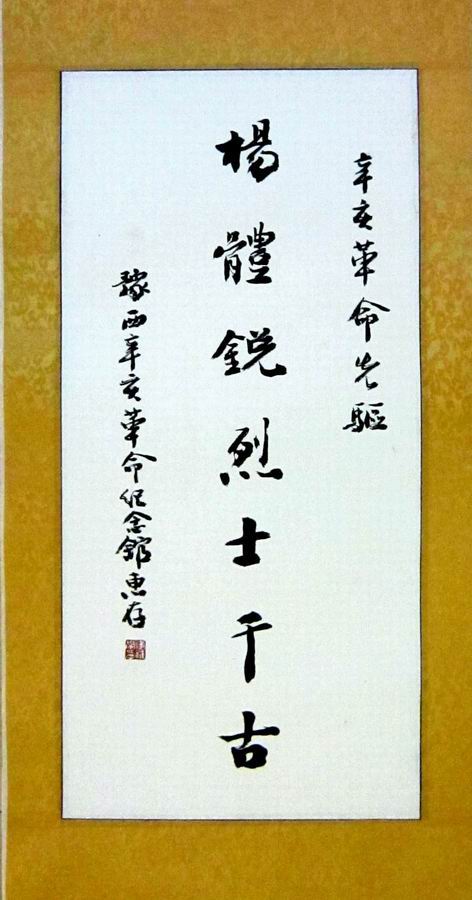 辛亥革命先驅
楊體銳烈士千古
豫西辛亥革命纪念館惠存